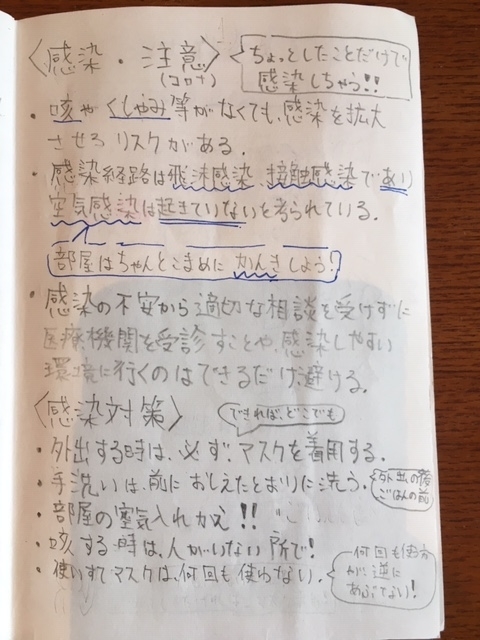 〈感染・注意〉
(コロナ)
ちょっとしたことだけで
感染しちゃう!!
・咳やくしゃみ等がなくても、感染を拡大
させるリスクがある。
・感染経路は飛沫感染、接触感染であり
空気感染は起きていないを考られている。
部屋はちゃんとこまめにかんきしよう?
・感染の不安から適切な相談を受けずに
医療機関を受診すことや、感染しやすい
環境に行くのはできるだけ避ける。
〈感染対策〉
できれば、どこでも
・外出する時は、必ず、マスクを着用する。
・手洗いは、前におしえたとおりに洗う。
外出の後
ごはんの前
・部屋の空気入れかえ!!
・咳する時は、人がいない所で!
・使いすてマスクは、何回も使わない。
何回も使う方
が逆に
あぶない!